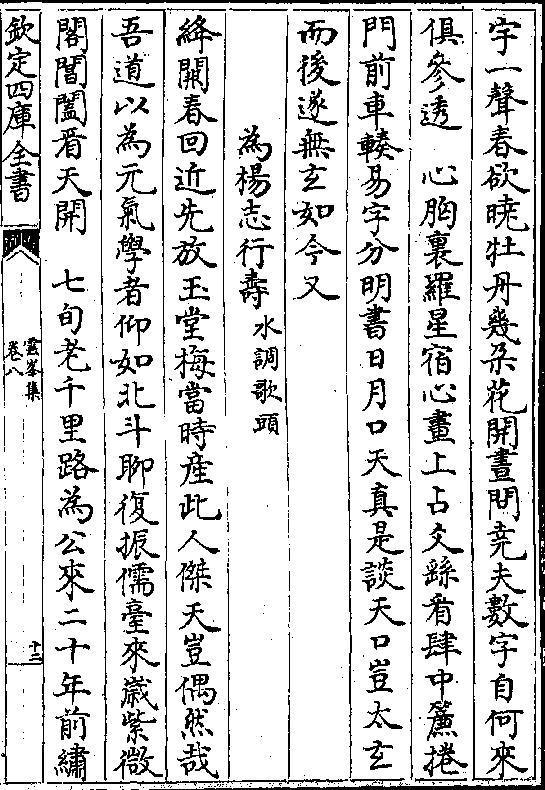 字一聲春欲曉牡丹幾朵花開晝問堯夫數字自何來
俱參透　心胸裏羅星宿心畫上占爻繇看肆中簾捲
門前車輳易字分明書日月口天真是談天口豈太玄
而後遂無玄如今又
為楊志行壽水調歌頭
絳闕春回近先放玉堂梅當時産此人傑天豈偶然哉
吾道以為元氣學者仰如北斗聊復振儒臺來嵗紫微
閣閶闔看天開　七旬老千里路為公來二十年前繡
欽定四庫全書
雲峯集
卷八
十二